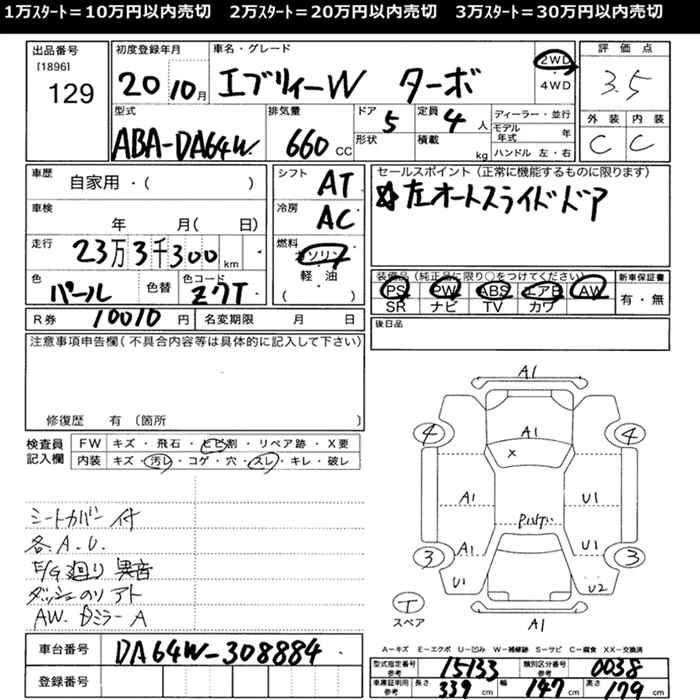 1万ｽﾀｰﾄ＝10万円以内売切　2万ｽﾀｰﾄ＝20万円以内売切　3万ｽﾀｰﾄ＝30万円以内売切
出品番号
[1896]
129
初度登録年月
20 10月
車名・グレード
エブリィーW ターボ
2WD
4WD
評価点
3.5
外装 内装
C C
型式
ABA-DA64W
排気量
660 CC
ドア
5
形状
定員
4 人
積載
kg
ディーラー・並行
モデル年式 年
ハンドル 左・右
車歴
自家用・( )
車検
年 月( 日)
走行
23万3千300 km
色
パール
色替
色コード
Z7T
シフト
AT
冷房
AC
燃料
ガソリン
軽油
( )
セールスポイント(正常に機能するものに限ります)
☆左オートスライドドア
装備品(純正品に限り○をつけてください)
PS PW ABS エアB AW
SR ナビ TV カワ
新車保証書
有・無
R券 10010 円
名変期限 月 日
後日品
注意事項申告欄(不具合内容等は具体的に記入して下さい)
修復歴 有 (箇所 )
検査員
記入欄
FW キズ・飛石・ヒビ割・リペア跡・X要
内装 キズ・汚レ・コゲ・穴・スレ・キレ・破レ
シートカバー付
各A.U.
E/G廻り異音
ダッシュのリアト
AW. Dミラー A
A1
4 A1 4
X
A1 U1
P.U.T.
A1 U1
3 3
U1 U2
T
スペア
A1
A－キズ E－エクボ U－凹み W－補修跡 S－サビ C－腐食 XX－交換済
車台番号
DA64W-308884
登録番号
型式指定番号
参考
15133
類別区分番号
参考
0038
車庫証明用
参考
長さ 339 cm 幅 147 cm 高さ 179 cm